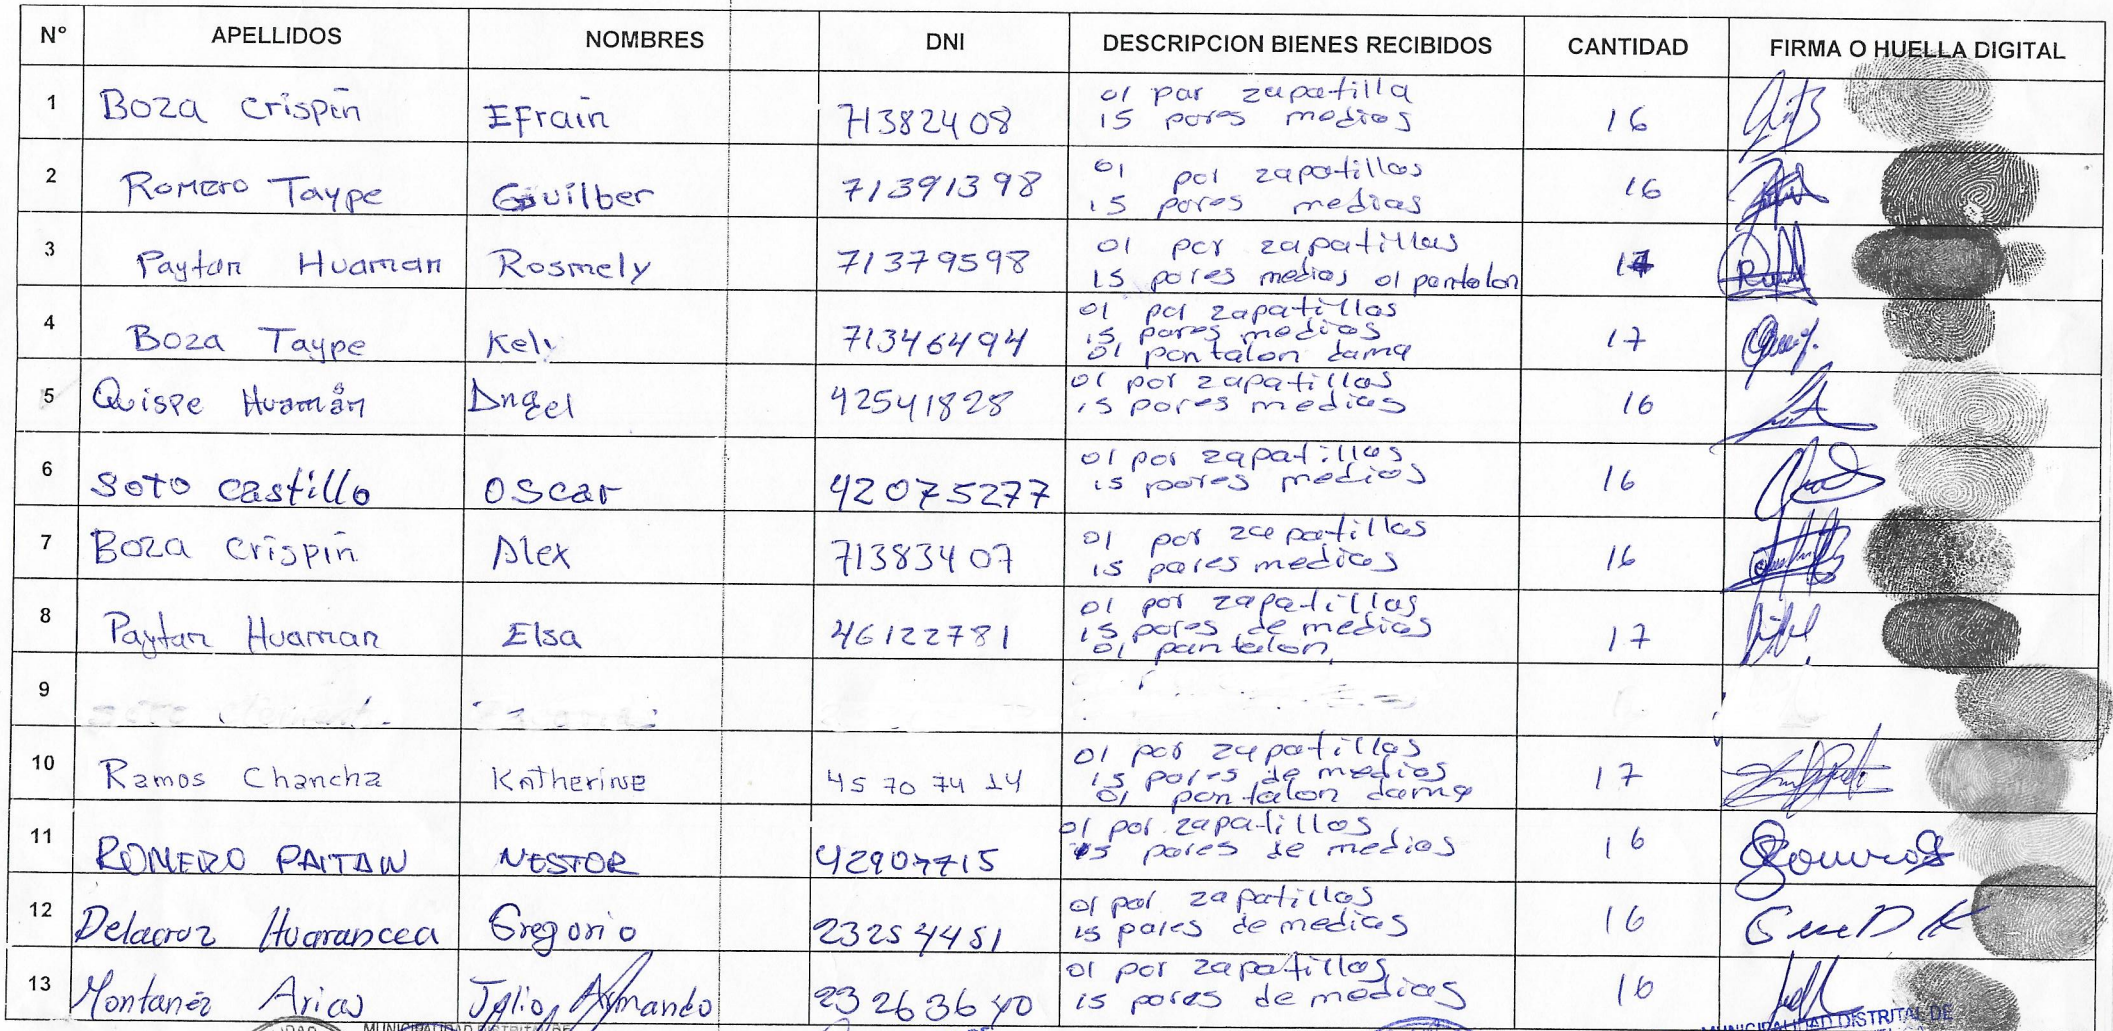 N° APELLIDOS NOMBRES DNI DESCRIPCION BIENES RECIBIDOS CANTIDAD FIRMA O HUELLA DIGITAL
1 Boza Crispin Efrain 71382408 01 par zapatilla 16
15 pares medias
2 Romero Taype Guilber 71391398 01 par zapatillas 16
15 pares medias
3 Paytan Huaman Rosmely 71379598 01 par zapatillas 17
15 pares medias 01 pantalon
4 Boza Taype Kely 71346494 01 par zapatillas 17
15 pares medias
01 pantalon dama
5 Quispe Huamán Angel 42541828 01 par zapatillas 16
15 pares medias
6 Soto Castillo Oscar 42075277 01 par zapatillas 16
15 pares medias
7 Boza Crispin Alex 71383407 01 par zapatillas 16
15 pares medias
8 Paytan Huaman Elsa 46122781 01 par zapatillas 17
15 pares de medias
01 pantalon
9
10 Ramos Chancha Katherine 45 70 74 14 01 par zapatillas 17
15 pares de medias
01 pantalon dama
11 ROMERO PAITAN NESTOR 42907715 01 par zapatillos 16
15 pares de medias
12 Delacruz Huarancca Gregorio 23254451 01 par zapatillas 16
15 pares de medias
13 Montañez Arias Julio Armando 23263640 01 par zapatillas 16
15 pares de medias
MUNICIPALIDAD DISTRITAL DE
DE
MUNICIPALIDAD DISTRITAL DE